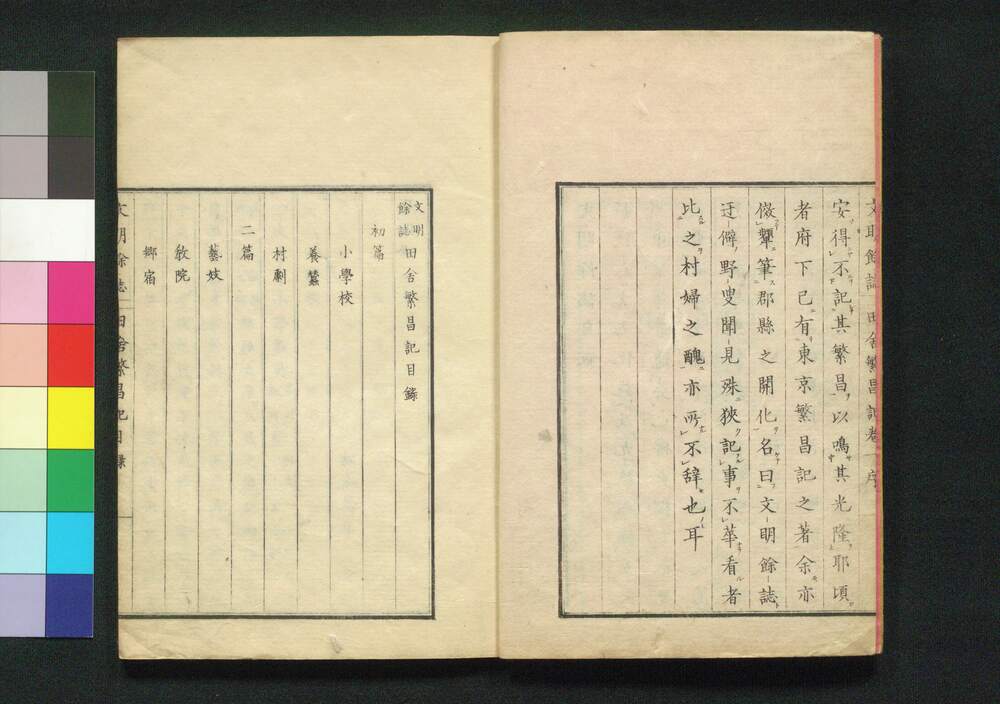 文明餘誌 田舍繁昌記卷一 序
安得不記其繁昌以鳴其光隆耶頃
者府下已有東京繁昌記之著余亦
傚顰筆郡縣之開化名曰文明餘誌
迂僻野叟聞見殊狹記事不華看者
比之村婦之醜亦所不辞也耳
文明餘誌田舍繁昌記目錄
初篇
小學校
養蠶
村劇
二篇
藝妓
敎院
鄉宿
文明餘誌 田舍繁昌記目錄